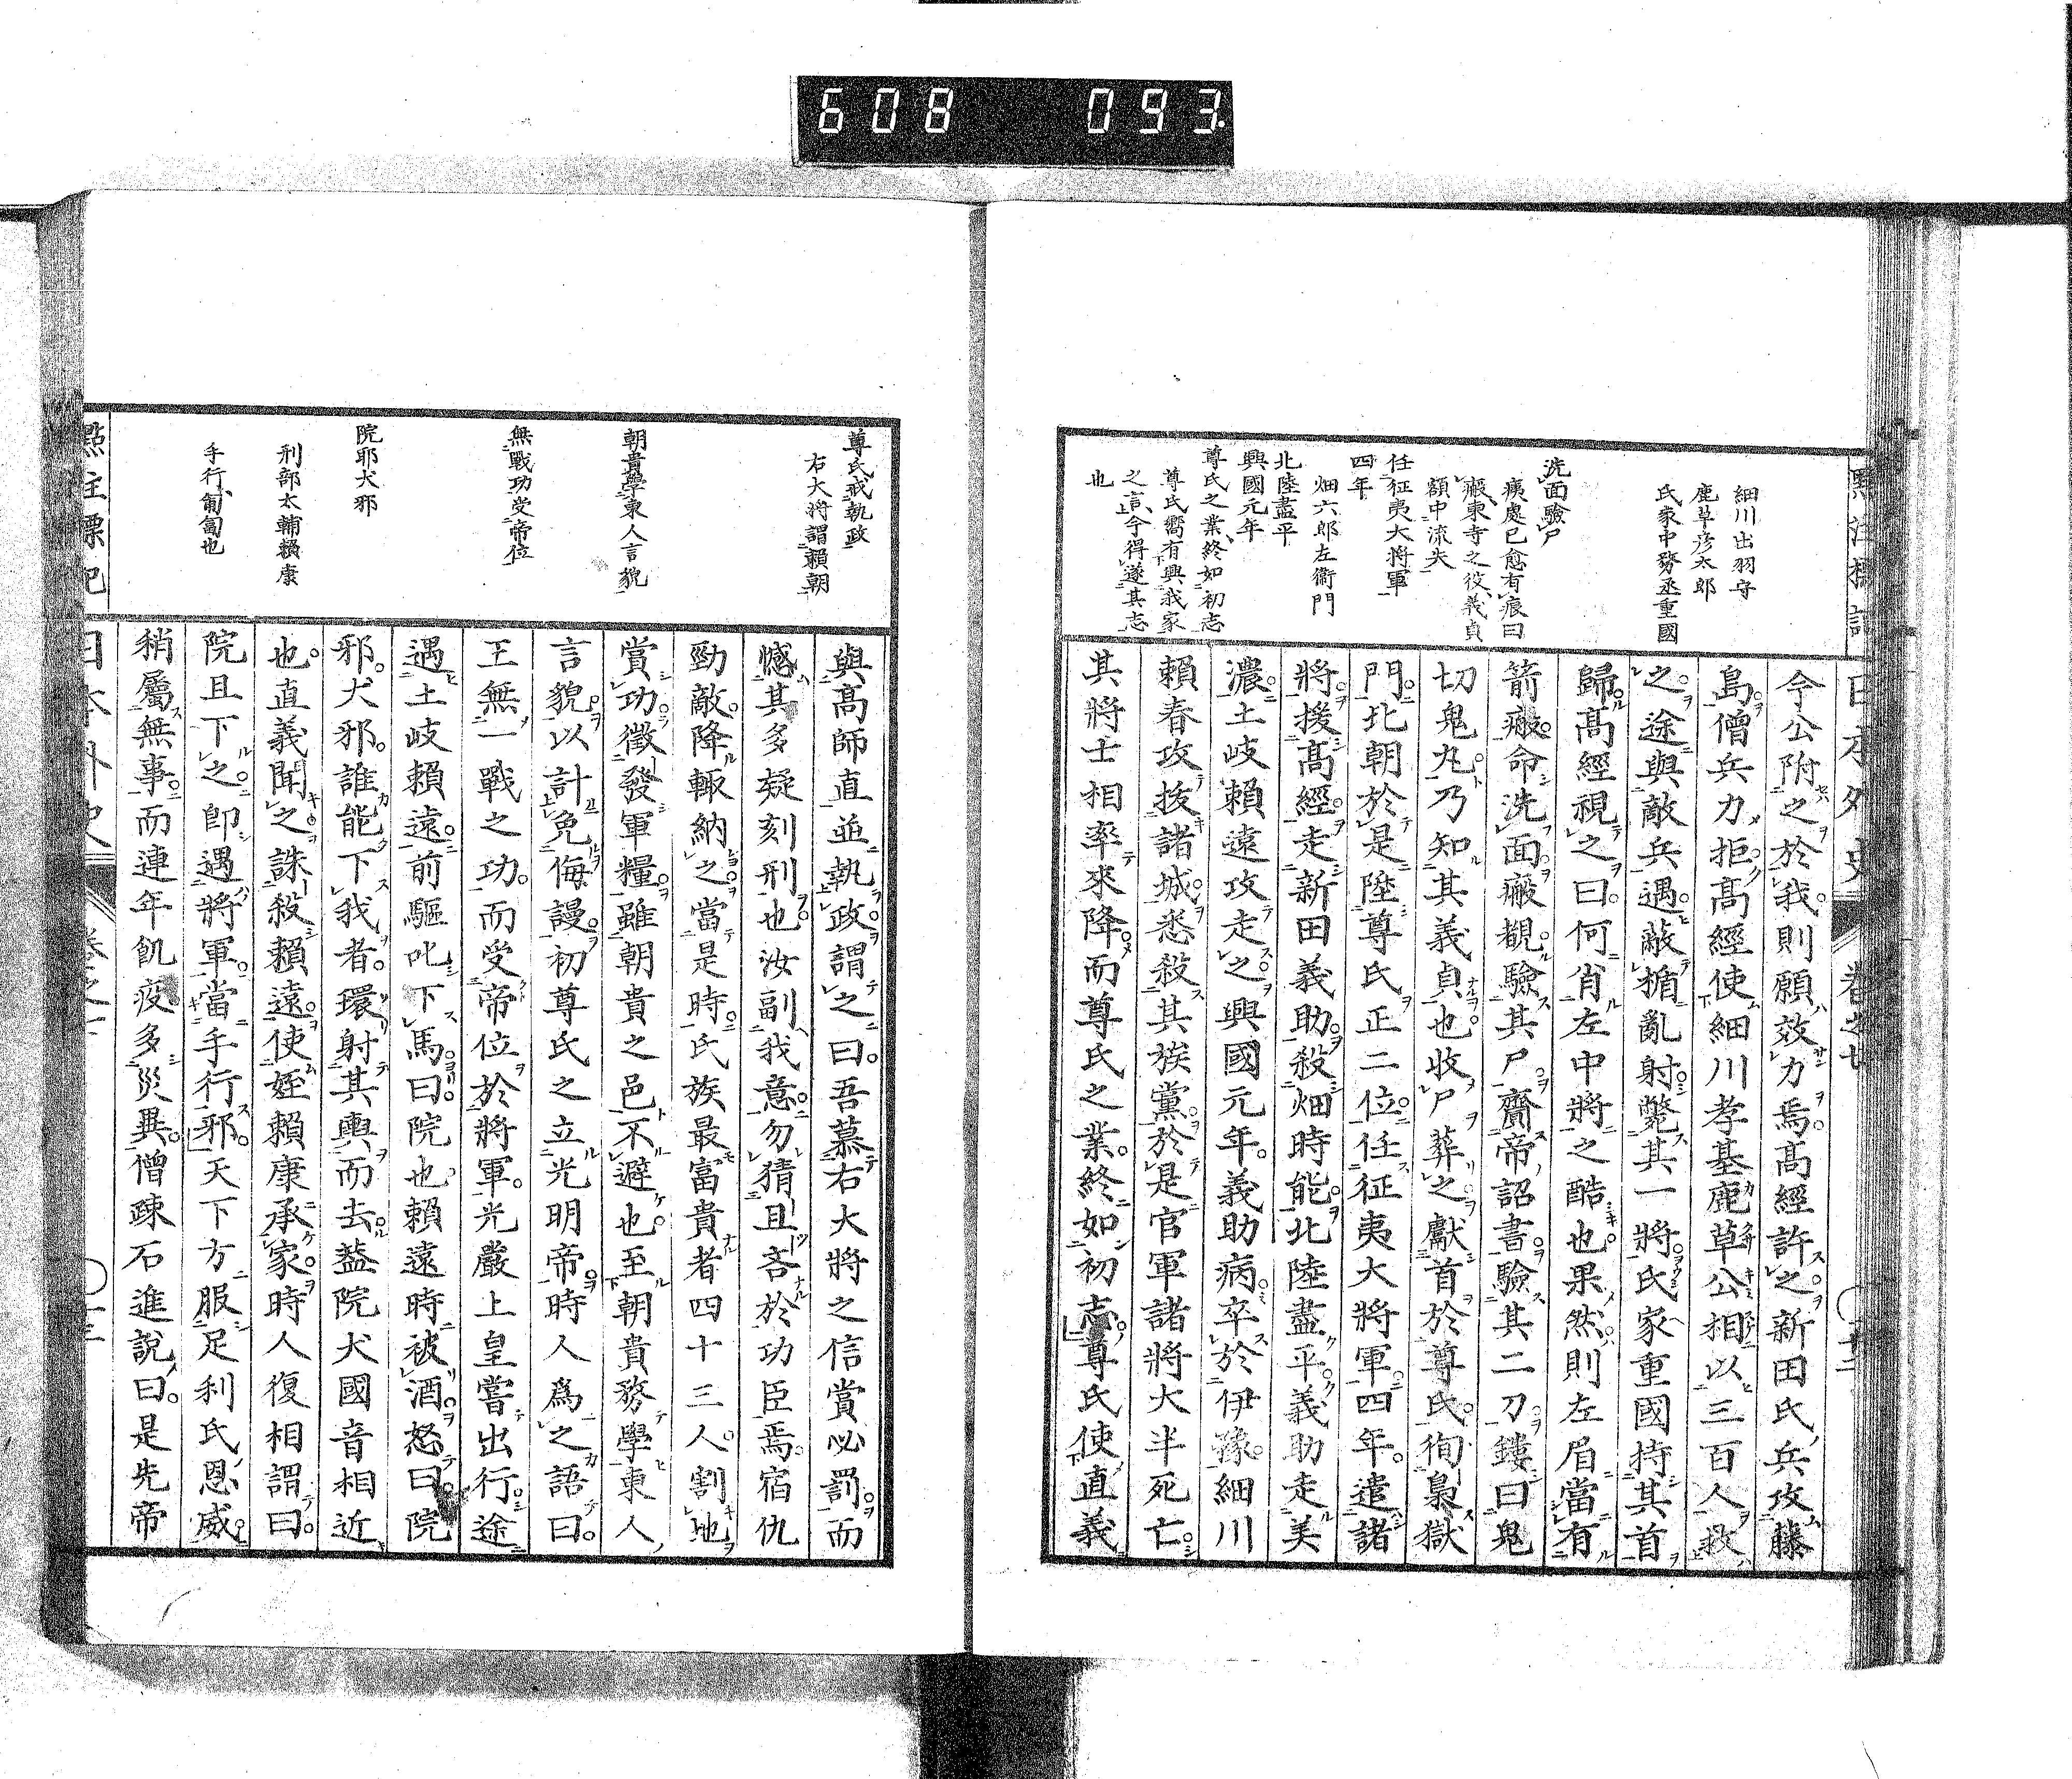 608 093
細川出羽守
鹿草彦太郎
氏家中務丞重國
洗面驗尸
痍處已愈有痕曰
瘢東寺之役義貞
額中流矢
任征夷大將軍
四年
畑六郎左衞門
北陸盡平
興國元年
尊氏之業終如初志
尊氏嚮有興我家
之言今得遂其志
也
今公附之於我則願效力焉高經許之新田氏兵攻藤
島僧兵力拒高經使細川孝基鹿草公相以三百人救
之途與敵兵遇敵楯亂射斃其一將氏家重國持其首
歸高經視之曰何肖左中將之酷也果然則左眉當有
箭瘢命洗面瘢覩驗其尸齎帝詔書驗其二刀鏤曰鬼
切鬼丸乃知其義貞也收尸葬之獻首於尊氏徇梟獄
門北朝於是陞尊氏正二位任征夷大將軍四年遣諸
將援高經走新田義助殺畑時能北陸盡平義助走美
濃土岐賴遠攻走之興國元年義助病卒於伊豫細川
賴春攻拔諸城悉殺其族黨於是官軍諸將大半死亡
其將士相率來降而尊氏之業終如初志尊氏使直義
尊氏戒執政
右大將謂賴朝
朝貴學東人言貌
無戰功受帝位
院耶犬邪
刑部太輔賴康
手行匍匐也
與高師直並執政謂之曰吾慕右大將之信賞必罰而
憾其多疑刻刑也汝副我意勿猜且吝於功臣焉宿仇
勁敵降輙納之當是時氏族最富貴者四十三人割地
賞功徵發軍糧雖朝貴之邑不避也至朝貴務學東人
言貌以計免侮謾初尊氏之立光明帝時人爲之語曰
王無一戰之功而受帝位於將軍光嚴上皇嘗出行途
遇土岐賴遠前驅叱下馬曰院也賴遠時被酒怒曰院
邪犬邪誰能下我者環射其輿而去蓋院犬國音相近
也直義聞之誅殺賴遠使姪賴康承家時人復相謂曰
院且下之卽遇將軍當手行邪天下方服足利氏恩威
稍屬無事而連年飢疫多災異僧疎石進說曰是先帝